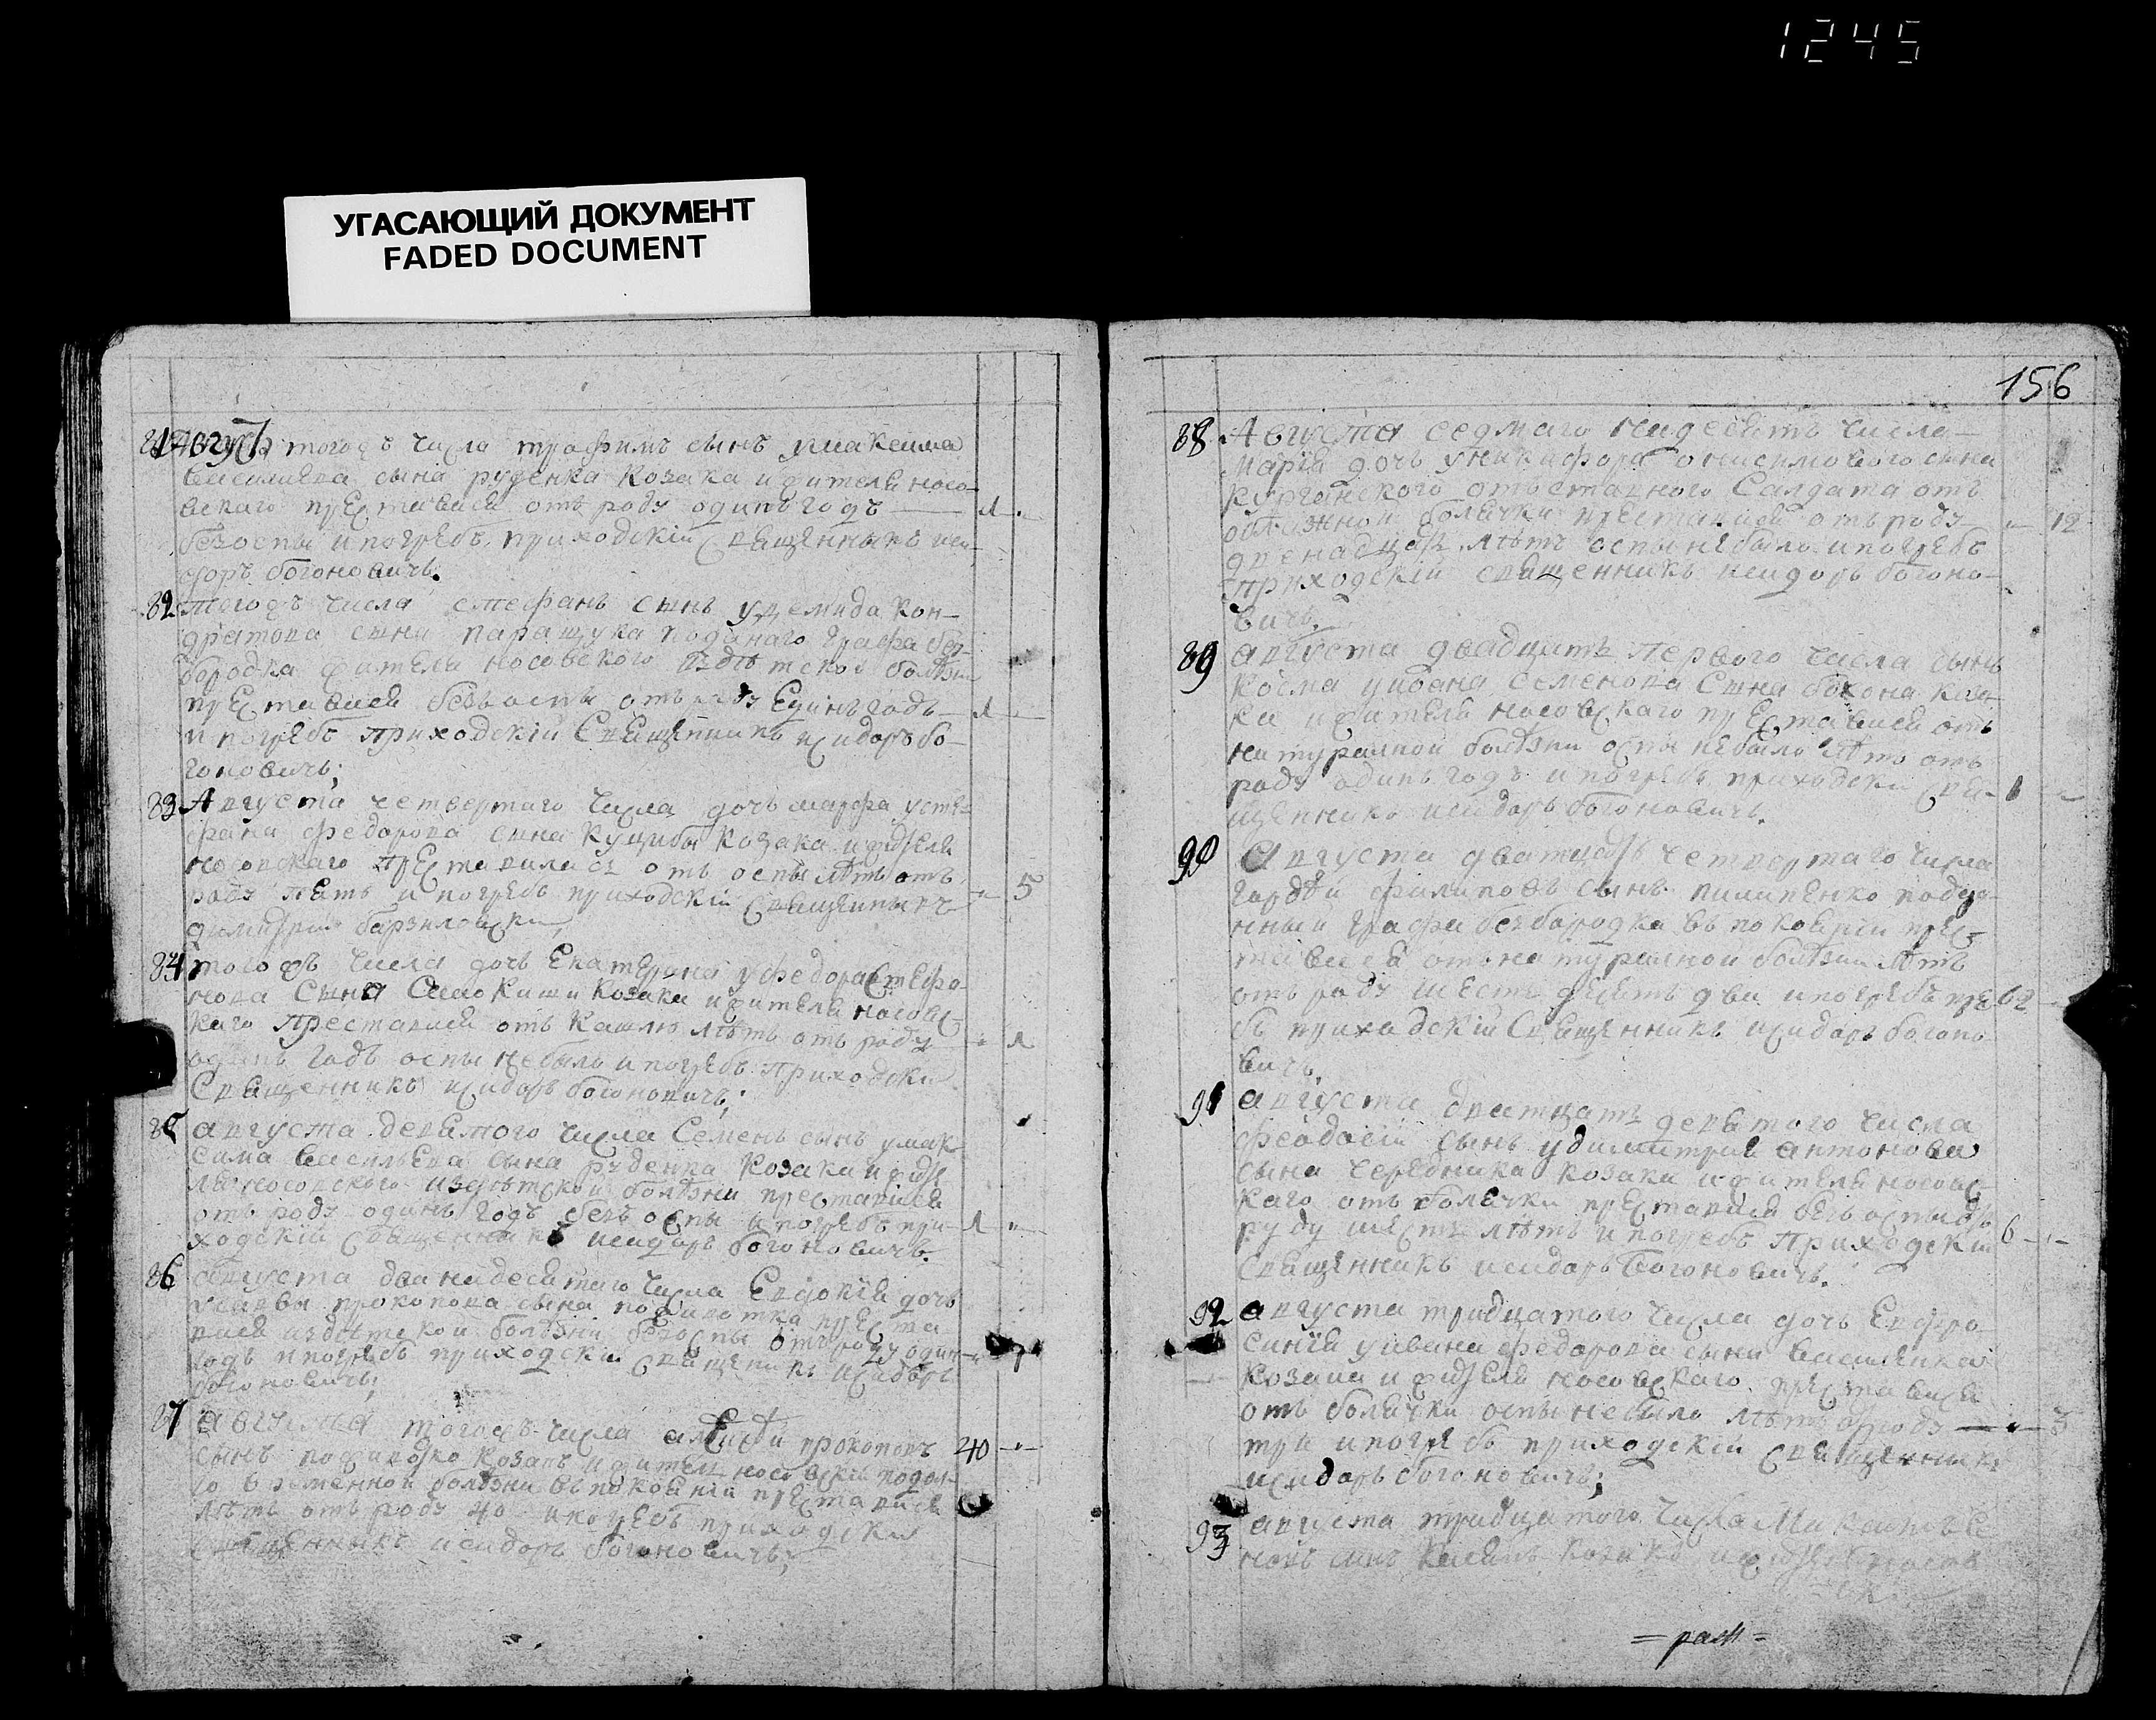 1245
УГАСАЮЩИЙ ДОКУМЕНТ
FADED DOCUMENT
Август тогожъ числа трофимъ сынъ умаксима
василиева сына руденка козака ижителя носо-
вскаго преставися отъ роду одинъ годъ — 1
безоспы ипогребъ приходскій священникъ иси-
доръ богоновичъ.
82 тогожъ числа стефанъ сынъ удемида кон-
дратова сына паращука поданаго графа без-
бородка жителя носовского издѣтской болѣзни
преставися безъоспы отъроду Единъгодъ — 1
и погребъ приходскій Священникъ исидоръ бо-
гоновичъ;
83 Августа четвертаго числа дочь марфа усте-
фана федорова сына куцибы козака ижителя
носовскаго преставилась отъ оспы лѣтъ отъ
роду пять и погребъ приходскій священникъ 5
димитрий
84 тогожъ числа дочь Екатерина уфедора стефа-
нова сына козака ижителя носовс-
каго преставися отъ кашлю лѣтъ отъ роду 1
одинъ годъ оспы небыло ипогребъ приходски
Священникъ исидоръ богоновичъ;
85 августа девятого числа Семенъ сынъ умак
сима василъева сына руденка козака ижите
ля носовского издѣтской болѣзни преставися
отъ роду одинъ годъ безъ оспы ипогребъ при- 1
ходскій священникъ исидоръ богоновичъ.
86 августа дванадесятаго числа Евдокія дочь
прокопова сына преста
вися издѣтской болѣзни безоспы отъроду один 1
годъ ипогребъ приходскій священикъ исидоръ
богоновичъ;
87 августа тогожъ числа прокоповъ 40
сынъ козакъ ижитель носовскій
болѣзни въпокояніи преставися
лѣтъ отъ роду 40 ипогребъ приходски
священникъ исидоръ богоновичъ;
156
88 Августа седмаго надесять числа
марія дочь уникифора онисимового сына
курганского отъставного салдата отъ
болячки преставися отъроду 12
дренадцать лѣтъ оспы небыло ипогребъ
приходскій священникъ исидоръ богоно-
вичъ.
89 августа двадцать первого числа сынъ
косма уивана семенова сына бокона коза-
ка ижителя носовскаго преставися отъ
натуралной болѣзни оспы небыло лѣтъ отъ
роду одинъ годъ ипогребъ приходски свя- 1
щенникъ исидоръ богоновичъ.
90 августа дватцать четвертаго числа
гордѣй филиповъ сынъ пилипенко подда-
нный графа безбородка въ покояніи прес-
тавися отънатуралной болѣзни лѣтъ
отъ роду шестьдесять два ипогребъ 62
приходскій священникъ исидоръ богоно
вичъ.
91 августа дватцать девятого числа
феодосій сынъ удимитрия антонова
сына чередника козака ижителя носовс-
каго отъ болячки преставися безъ оспы отъ
роду шесть лѣтъ ипогребъ приходскій 6
священникъ исидоръ богоновичъ.
92 августа тридцатого числа дочь Евфро-
синія уивана федорова сына василенка
козака ижителя носовскаго преставися
отъ болячки оспы небыло лѣтъ отроду — 3
три ипогребъ приходскій священникъ
исидоръ богоновичъ;
93 августа тридцатого числа
сынъ козакъ